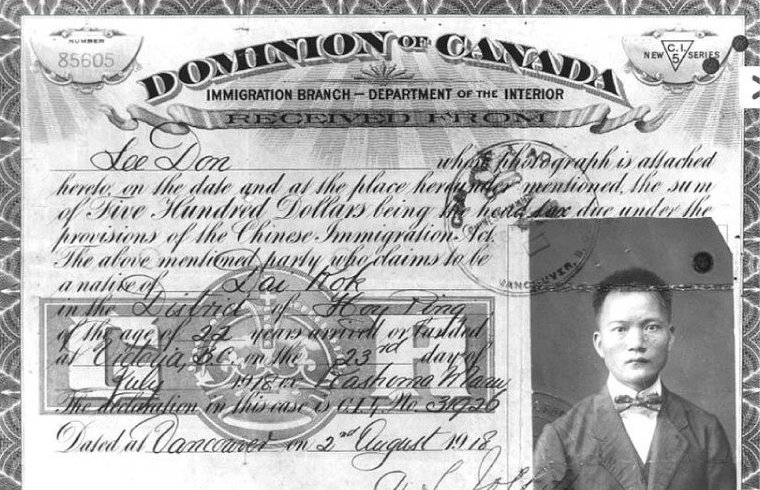 NUMBER
85605
DOMINION OF CANADA
NEW C.I.5 SERIES
IMMIGRATION BRANCH — DEPARTMENT OF THE INTERIOR
RECEIVED FROM
Lee Don whose photograph is attached
hereto, on the date and at the place hereunder mentioned, the sum
of Five Hundred Dollars being the head tax due under the
provisions of the Chinese Immigration Act.
The above mentioned party who claims to be
a native of Dai Kok
in the District of Hoy Ping
of the age of 22 years arrived or landed
at Victoria, B.C. on the 23rd day of
July 1918 ex Maru
The declaration in this case is C.I.4. No. 31926
Dated at Vancouver on 2nd August 1918
VANCOUVER, B.C.